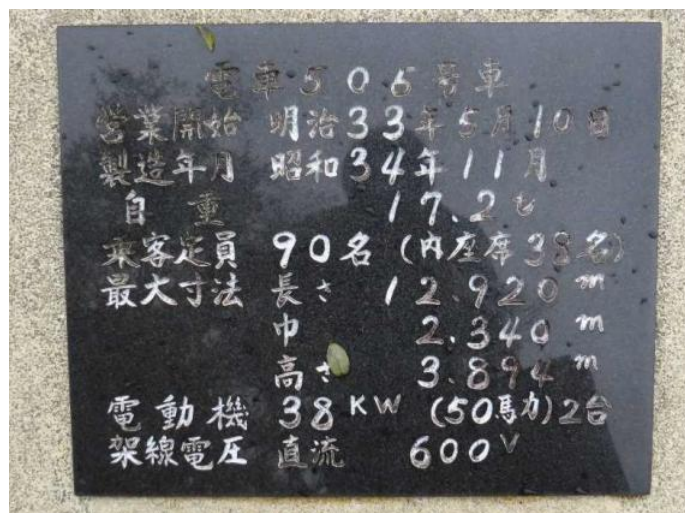 電車505号車
営業開始 明治33年5月10日
製造年月 昭和34年11月
自重 17.2t
乗客定員 90名 (内座席38名)
最大寸法 長さ 12.920m
巾 2.340m
高さ 3.894m
電動機 38KW (50馬力)2台
架線電圧 直流 600V